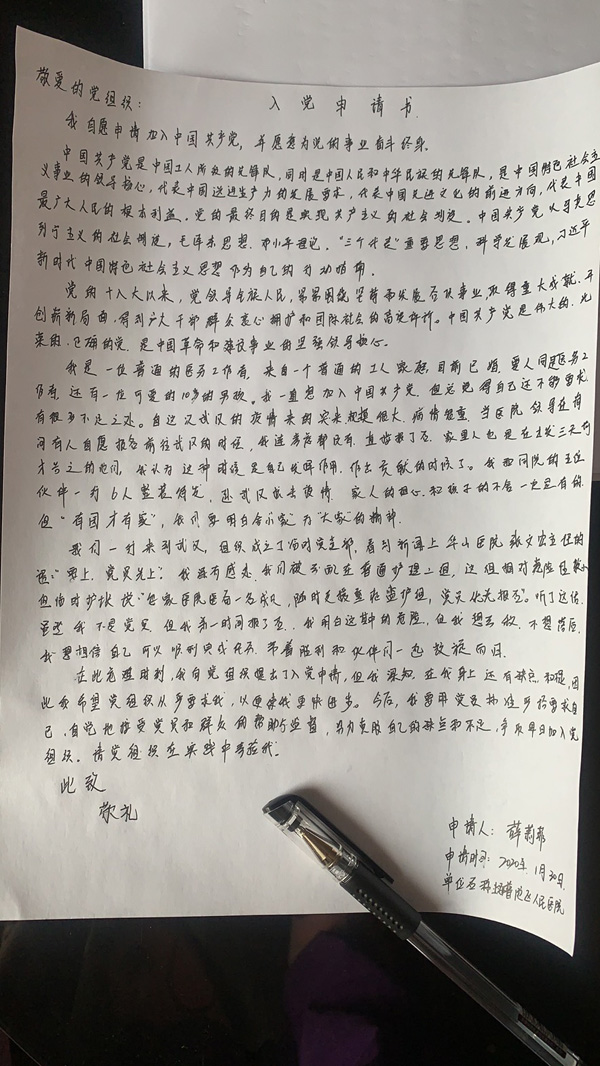 入党申请书
敬爱的党组织:
我自愿申请加入中国共产党,并愿意为党的事业奋斗终身。
中国共产党是中国工人阶级的先锋队,同时是中国人民和中华民族的先锋队,是中国特色社会主
义事业的领导核心,代表中国先进生产力的发展要求,代表中国先进文化的前进方向,代表中国
最广大人民的根本利益。党的最终目的是实现共产主义的社会制度。中国共产党以马克思
列宁主义的社会制度,毛泽东思想,邓小平理论,“三个代表”重要思想,科学发展观,习近平
新时代中国特色社会主义思想作为自己的行动指南。
党的十八大以来,党领导全族人民,紧紧围绕坚持和发展各族事业,取得重大成就,开
创新新局面,得到广大干部群众衷心拥护和国际社会的高度评价。中国共产党是伟大的、光
荣的、正确的党,是中国革命和建设事业的坚强领导核心。
我是一位普通的医务工作者,来自一个普通的工人家庭,目前已婚,爱人同是医务工
作者,还有一位可爱的10岁的男孩。我一直想加入中国共产党,但总觉得自己还不够要求,
有很多不足之处。自这次武汉的疫情来的突来,病情严重,当医院领导在询
问有人自愿报名前往武汉的时候,我连考虑都没有,直接报了名。家里人也是在出发三天前
才告之的他们,我认为这种时候是自己发挥作用,作出贡献的时候了。我和同院的五位
伙伴一行6人整装待发,赴武汉抗击疫情,家人的担心和孩子的不舍一定是有的
但“有国才有家”,我们要明白舍“小家”为“大家”的精神。
我们一行来到武汉,组织成立了临时党支部,看到新闻上华山医院张文宏主任的
话:“要上,党员先上”,我深有感态,我们被分配在普通护理二组,这组相对危险性较小
但临时护长说“每家医院医一名成员,随时支援重症监护组,党员优先报名”。听了这话,
虽然我不是党员,但我第一时间报了名,我明白这其中的危险,但我想去做,不想落后,
我要相信自己可以顺利完成任务,带着胜利和伙伴们一起凯旋而归。
在此危难时刻,我向党组织提出了入党申请,但我深知,在我身上还有缺点和不足,因
此我希望党组织从严要求我,以便使我更快进步。今后,我要用党员标准严格要求自
己,自觉地接受党员和群众的帮助与监督,努力克服自己的缺点和不足,争取早日加入党
组织。请党组织在实践中考验我。
此致
敬礼
申请人:薛莉莉
申请时间:2020年1月30日
单位名称:上海普陀区人民医院